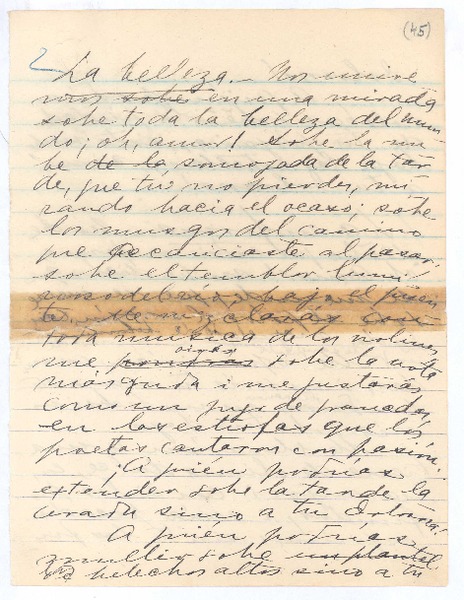 (45)
2
La belleza.— Nos unire
mos sobre en una mirada
sobre toda la belleza del mun
do; oh, amor! Sobre la nu
be de la sonrojada de la tar
de, que tú no pierdes, mi
rando hacia el ocaso; sobre
los musgos del camino
que acariciaste al pasar,
sobre el temblor lumi
noso del río, bajo el puen
te
toda musica de los violines
me oirás sobre la nota
mas aguda i me gustarás
como un jugo de granadas
en las estrofas que los
poetas cantaron con pasión.
¡A quién podrías
extender sobre la tarde la
sino a tu
A quién podrías
sobre un plantel
de helechos altos sino a tu